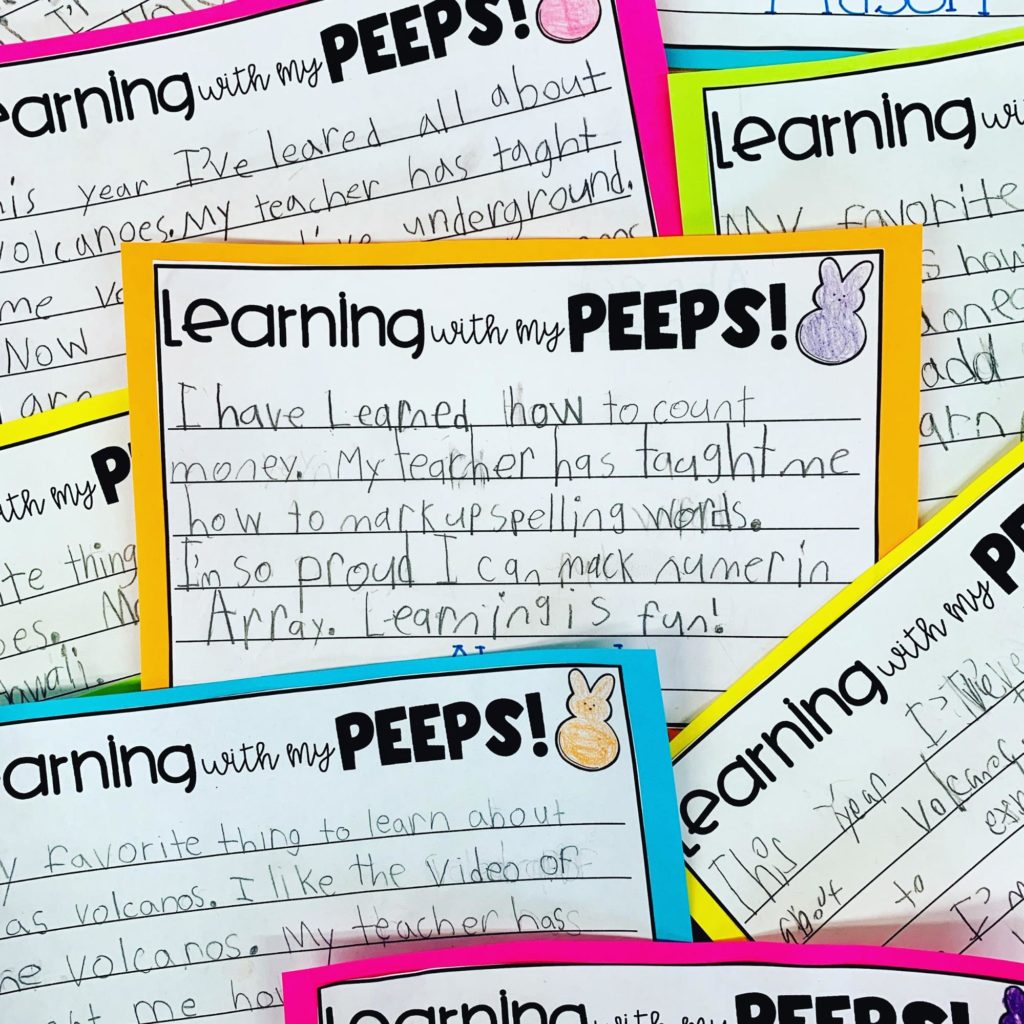 Learning with my PEEPS!
his year I've leared all about
volcanoes. My teacher has taght
me underground.
Now
are
Learning
My favorite
how
add
Learning with my PEEPS!
I have Learned how to count
money. My teacher has taught me
how to mark up spelling words.
I'm so proud I can mack numer in
Array. Learning is fun!
with my P
te thing
oes.
Learning with my PEEPS!
y favorite thing to learn about
as volcanos. I like the video of
he volcanos. My teacher hass
ght me how
Learning with my PE
This year I've
about volcano
to
Learning with my PEEPS!